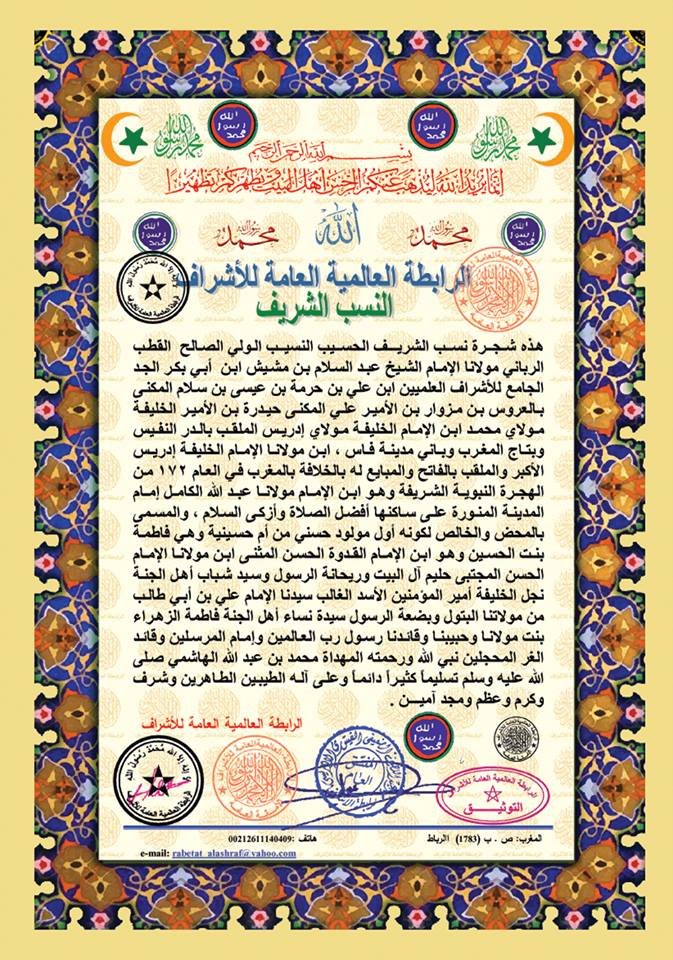 بسم الله الرحمن الرحيم
إنما يريد الله ليذهب عنكم الرجس أهل البيت ويطهركم تطهيرا
محمد رسول الله
الله
رسول
محمد
الله
محمد
محمد
الرابطة العالمية العامة للأشراف
النسب الشريف
هذه شجرة نسب الشريف الحسيب النسيب الولي الصالح القطب
الرباني مولانا الإمام الشيخ عبد السلام بن مشيش ابن أبي بكر الجد
الجامع للأشراف العلميين ابن علي بن حرمة بن عيسى بن سلام المكنى
بالعروس بن مزوار بن الأمير علي المكنى حيدرة بن الأمير الخليفة
مولاي محمد ابن الإمام الخليفة مولاي إدريس الملقب بالدر النفيس
وبتاج المغرب وباني مدينة فاس ، ابن مولانا الإمام الخليفة إدريس
الأكبر والملقب بالفاتح والمبايع له بالخلافة بالمغرب في العام ١٧٢ من
الهجرة النبوية الشريفة وهو ابن الإمام مولانا عبد الله الكامل إمام
المدينة المنورة على ساكنها أفضل الصلاة وأزكى السلام ، والمسمى
بالمحض والخالص لكونه أول مولود حسني من أم حسينية وهي فاطمة
بنت الحسين وهو ابن الإمام القدوة الحسن المثنى ابن مولانا الإمام
الحسن المجتبى حليم آل البيت وريحانة الرسول وسيد شباب أهل الجنة
نجل الخليفة أمير المؤمنين الأسد الغالب سيدنا الإمام علي بن أبي طالب
من مولاتنا البتول وبضعة الرسول سيدة نساء أهل الجنة فاطمة الزهراء
بنت مولانا وحبيبنا وقائدنا رسول رب العالمين وإمام المرسلين وقائد
الغر المحجلين نبي الله ورحمته المهداة محمد بن عبد الله الهاشمي صلى
الله عليه وسلم تسليماً كثيراً دائماً وعلى آله الطيبين الطاهرين وشرف
وكرم وعظم ومجد آميـن .
الرابطة العالمية العامة للأشراف
الله
رسول
محمد
لا إله إلا الله محمد رسول الله
الرابطة العالمية العامة للأشراف
الرابطة العالمية العامة للأشراف
التوثيق
المغرب: ص . ب (1783) الرباط
هاتف :00212611140409
e-mail: rabetat_alashraf@yahoo.com